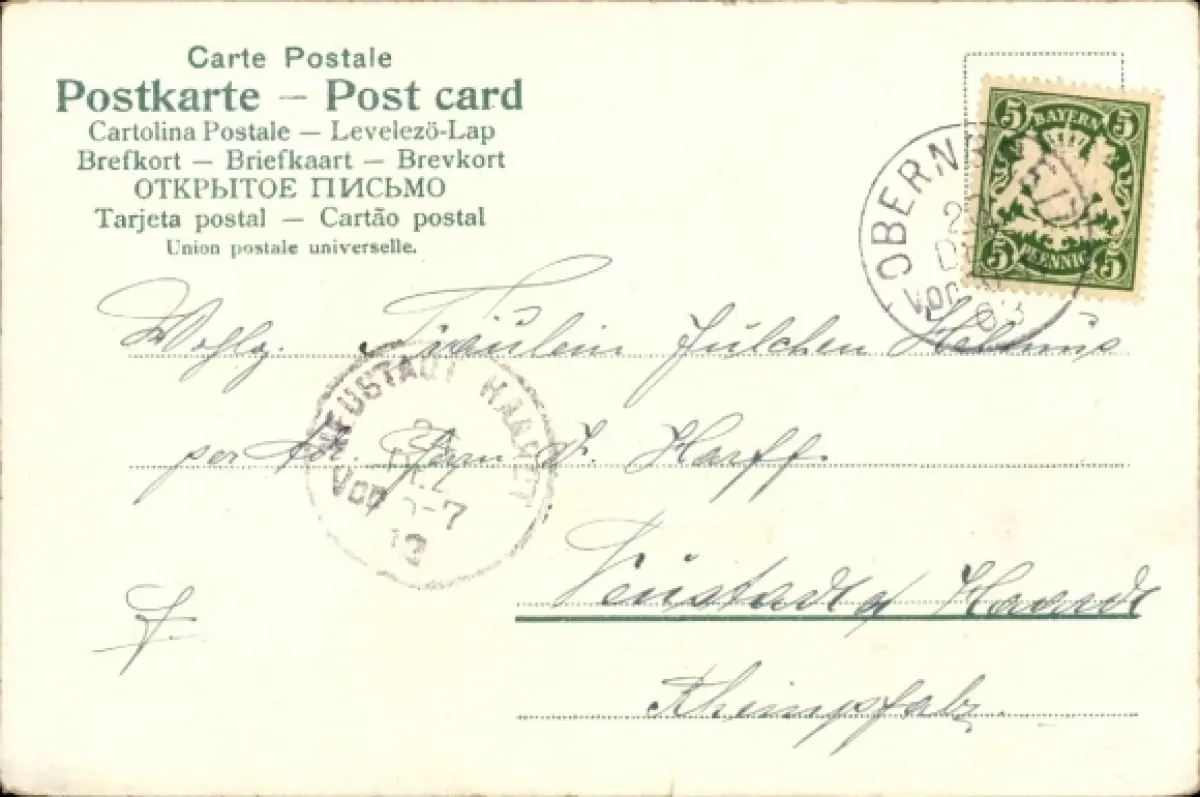 Carte Postale
Postkarte – Post card
Cartolina Postale – Levelező-Lap
Brefkort – Briefkaart – Brevkort
ОТКРЫТОЕ ПИСЬМО
Tarjeta postal – Cartão postal
Union postale universelle.
5 BAYERN 5
5 PFENNIG 5
OBERNB
Vor
03
Wohlg. Fräulein Julchen Helmus
per Adr. K. Harff.
NEUSTADT HAARDT
Vor 6-7
Neustadt a/ Haardt
Rheinpfalz.
F.